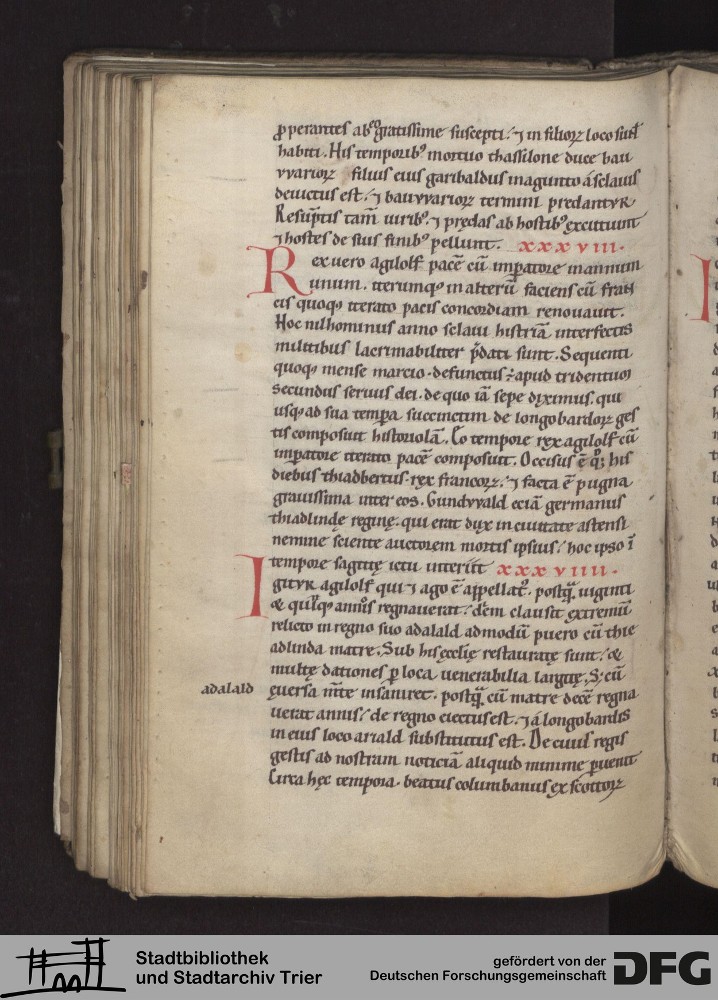 ꝓperantes ab eo gratissime suscepti. ⁊ in filioꝝ loco sunt
habiti. His temporibꝰ mortuo thassilone duce bau
vvarioꝝ filius eius garibaldus in agunto a sclauis
deuictus est. ⁊ bauvvarioꝝ termini predantur
Resūptis tam̄ uiribꝰ. ⁊ prędas ab hostibꝰ excutiunt
⁊ hostes de suis finibꝰ pellunt. xxxviii.
Rex uero agilolf pacē cū imꝑatore in annum
unum. iterumqꝫ in alterū faciens cū fran
cis quoqꝫ iterato pacis concordiam renouauit.
Hoc nilhominus anno sclaui histriā interfectis
militibus lacrimabiliter p̄dati sunt. Sequenti
quoqꝫ mense marcio. defunctus ÷ apud tridentum
secundus seruus dei. de quo iā sepe diximus. qui
usqꝫ ad sua temꝑa succinctam de longobardoꝝ ges
tis composuit historiolā. Eo tempore rex agilolf cū
imꝑatore iterato pacē composuit. Occisus ē qꝫ his
diebus thiadbertus. rex francoꝝ. ⁊ facta ē pugna
grauissima inter eos. Gundvvald eciā germanus
thiadlindę reginę. qui erat dux in ciuitate astensi
nemine sciente auctorem mortis ipsius. hoc ipso ī
tempore sagittę ictu interiit xxxviiii.
Igitur agilolf qui ⁊ ago ē appellatꝰ. postꝗ̄ uiginti
& quinqꝫ annos regnauerat. diem clausit extremū
relicto in regno suo adalald admodū puero cū thie
adlinda matre. Sub his ęcclię restauratę sunt. &
multę dationes ꝑ loca uenerabilia largitę. S; cū
adalald
euersa mīte insaniret. postꝗ̄ cū matre decē regna
uerat annis. de regno eiectus est. ⁊ a longobardis
in eius loco ariald substitutus est. De cuius regis
gestis ad nostram noticiā aliquid minime ꝑuenit
Circa hęc tempora. beatus columbanus ex scottoꝝ
Stadtbibliothek
und Stadtarchiv Trier
gefördert von der
Deutschen Forschungsgemeinschaft
DFG